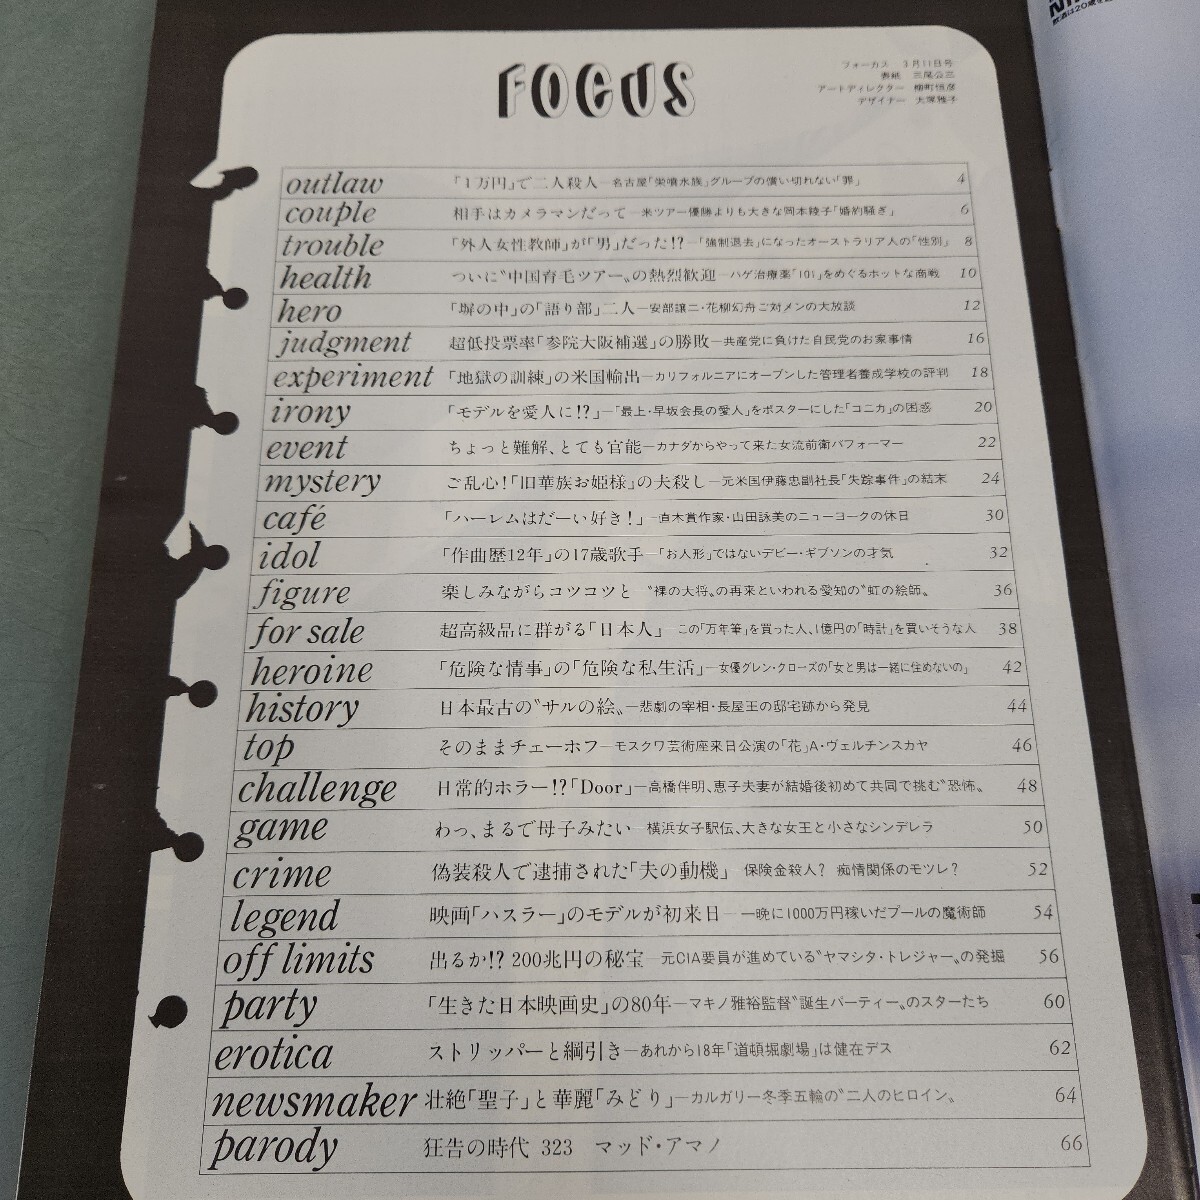 FOCUS
フォーカス　3月11日号
表紙　三尾公三
アートディレクター　柳町恒彦
デザイナー　大塚雅子
outlaw 「1万円」で二人殺人―名古屋「栄噴水族」グループの償い切れない「罪」 4
couple 相手はカメラマンだって―米ツアー優勝よりも大きな岡本綾子「婚約騒ぎ」 6
trouble 「外人女性教師」が「男」だった!?―「強制退去」になったオーストラリア人の「性別」 8
health ついに〝中国育毛ツアー〟の熱烈歓迎―ハゲ治療薬「101」をめぐるホットな商戦 10
hero 「塀の中」の「語り部」二人―安部譲二・花柳幻舟ご対メンの大放談 12
judgment 超低投票率「参院大阪補選」の勝敗―共産党に負けた自民党のお家事情 16
experiment 「地獄の訓練」の米国輸出―カリフォルニアにオープンした管理者養成学校の評判 18
irony 「モデルを愛人に!?」―「最上・早坂会長の愛人」をポスターにした「コニカ」の困惑 20
event ちょっと難解、とても官能―カナダからやって来た女流前衛パフォーマー 22
mystery ご乱心!「旧華族お姫様」の夫殺し―元米国伊藤忠副社長「失踪事件」の結末 24
café 「ハーレムはだーい好き!」―直木賞作家・山田詠美のニューヨークの休日 30
idol 「作曲歴12年」の17歳歌手―「お人形」ではないデビー・ギブソンの才気 32
figure 楽しみながらコツコツと　〝裸の大将〟の再来といわれる愛知の〝虹の絵師〟 36
for sale 超高級品に群がる「日本人」　この「万年筆」を買った人、1億円の「時計」を買いそうな人 38
heroine 「危険な情事」の「危険な私生活」―女優グレン・クローズの「女と男は一緒に住めないの」 42
history 日本最古の〝サルの絵〟―悲劇の宰相・長屋王の邸宅跡から発見 44
top そのままチェーホフ―モスクワ芸術座来日公演の「花」A・ヴェルチンスカヤ 46
challenge 日常的ホラー!?「Door」―高橋伴明、恵子夫妻が結婚後初めて共同で挑む〝恐怖〟 48
game わっ、まるで母子みたい―横浜女子駅伝、大きな女王と小さなシンデレラ 50
crime 偽装殺人で逮捕された「夫の動機」　保険金殺人?　痴情関係のモツレ? 52
legend 映画「ハスラー」のモデルが初来日―一晩に1000万円稼いだプールの魔術師 54
off limits 出るか!? 200兆円の秘宝―元CIA要員が進めている〝ヤマシタ・トレジャー〟の発掘 56
party 「生きた日本映画史」の80年―マキノ雅裕監督〝誕生パーティー〟のスターたち 60
erotica ストリッパーと綱引き―あれから18年「道頓堀劇場」は健在デス 62
newsmaker 壮絶「聖子」と華麗「みどり」―カルガリー冬季五輪の〝二人のヒロイン〟 64
parody 狂告の時代 323　マッド・アマノ 66